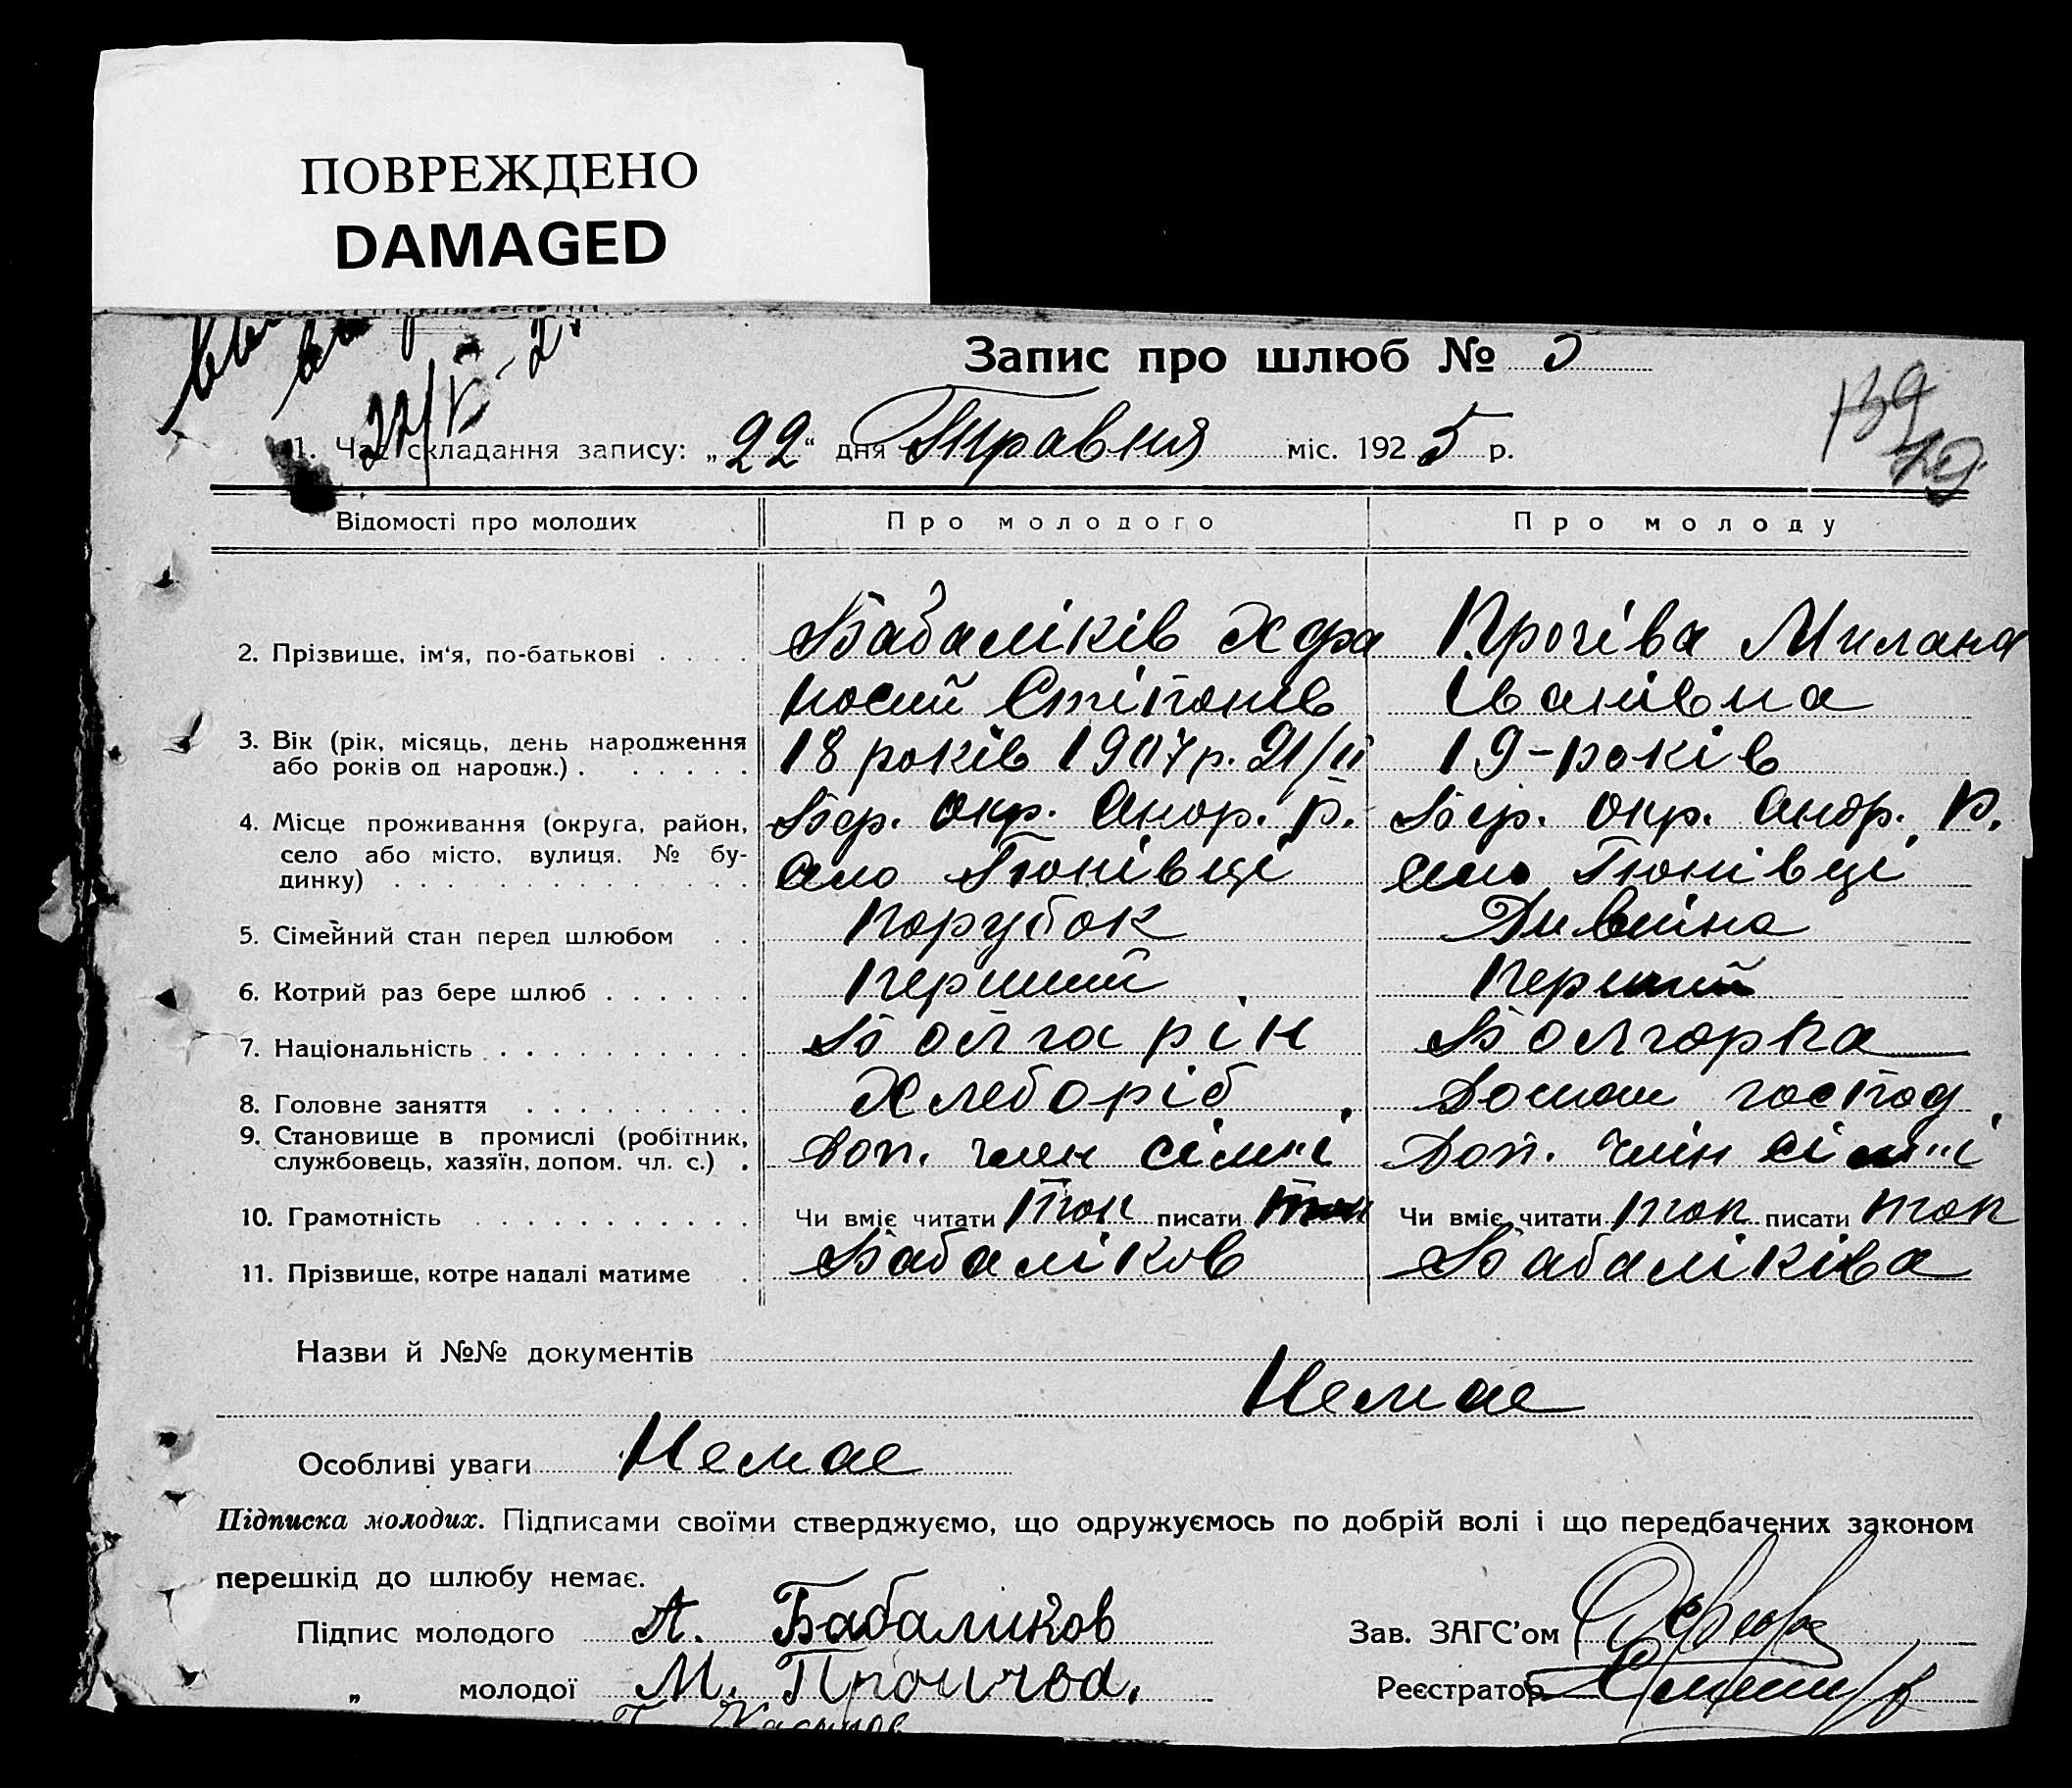 ПОВРЕЖДЕНО
DAMAGED
22/V-2
Запис про шлюб №
139
1. Час складання запису: „22“ дня Травня міс. 1925 р.
Відомості про молодих Про молодого Про молоду
2. Прізвище, ім'я, по-батькові Бабаліків Хфа Прогіва Милана
носий Стіпонів Іванівна
3. Вік (рік, місяць, день народження або років од народж.) 18 років 1907 р. 21/II 19-років
4. Місце проживання (округа, район, Бер. окр. Андр. р. Бер. окр. Андр. р.
село або місто, вулиця, № бу-
динку) село Тюнівці село Тюнівці
5. Сімейний стан перед шлюбом Порубок Дивчина
6. Котрий раз бере шлюб Перший Перший
7. Національність Болгарін Болгорка
8. Головне заняття Хлеборіб Домаш господ.
9. Становище в промислі (робітник,
службовець, хазяїн, допом. чл. с.) Доп. член сімї Доп. член сімї
10. Грамотність Чи вміє читати так писати так Чи вміє читати так писати так
11. Прізвище, котре надалі матиме Бабаліков Бабаліківа
Назви й №№ документів
Немае
Особливі уваги Немае
Підписка молодих. Підписами своїми стверджуємо, що одружуємось по добрій волі і що передбачених законом
перешкід до шлюбу немає.
Підпис молодого А. Бабаликов Зав. ЗАГС'ом
„ молодої М. Реєстратор